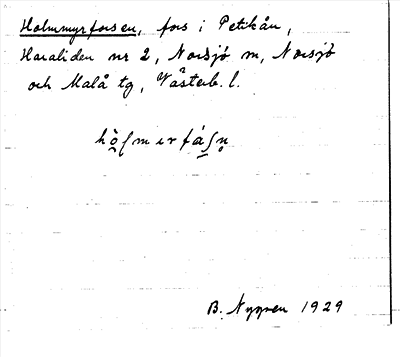 Holmmyrforsen, fors i Petikån,
Haraliden nr 2, Norsjö sn, Norsjö
och Malå tg, Västerb. l.
B. Nygren 1929